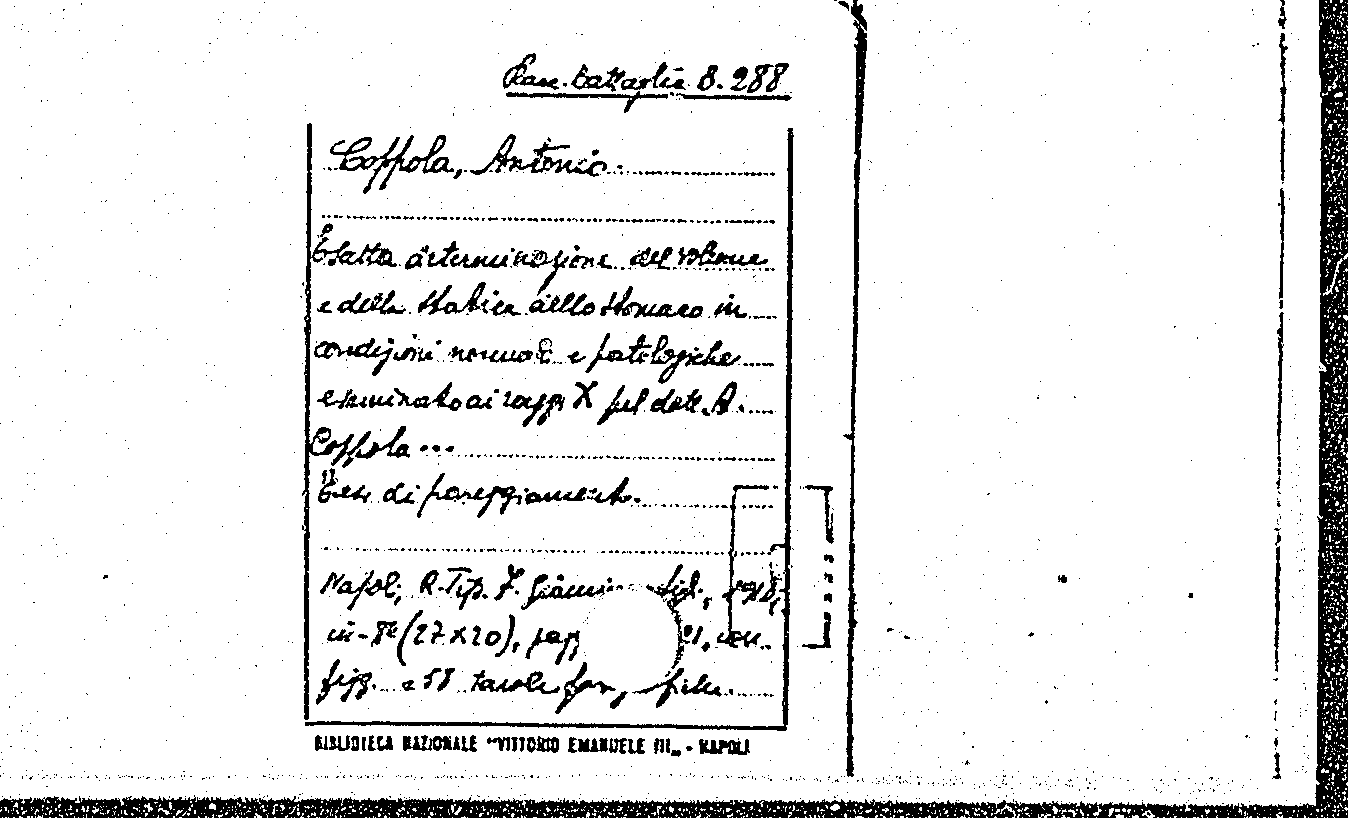 Racc. Battaglia B. 288
Coppola, Antonio.
Esatta determinazione del volume
e della statica dello stomaco in
condizioni normali e patologiche
esaminato ai raggi X pel dott. A.
Coppola ...
Tesi di pareggiamento.
Napoli, R. Tip. F. Giannini figli,
in-8° (27x20), pagg con
figg. e 58 tavole
BIBLIOTECA NAZIONALE "VITTORIO EMANUELE III„ - NAPOLI